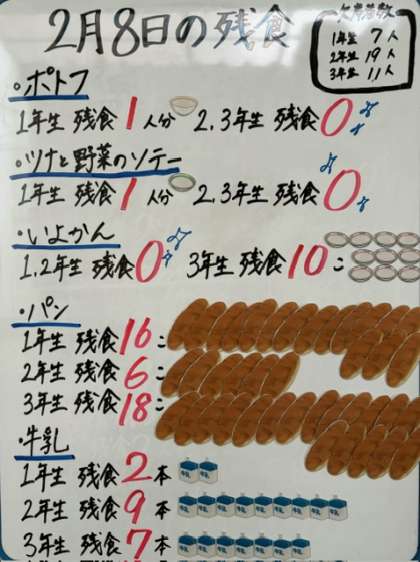 2月8日の残食
欠席者数
1年生 7人
2年生 19人
3年生 11人
・ポトフ
1年生 残食1人分 2,3年生 残食0
・ツナと野菜のソテー
1年生 残食1人分 2,3年生 残食0
・いよかん
1,2年生 残食0 3年生 残食10こ
・パン
1年生 残食16こ
2年生 残食6こ
3年生 残食18こ
・牛乳
1年生 残食2本
2年生 残食9本
3年生 残食7本